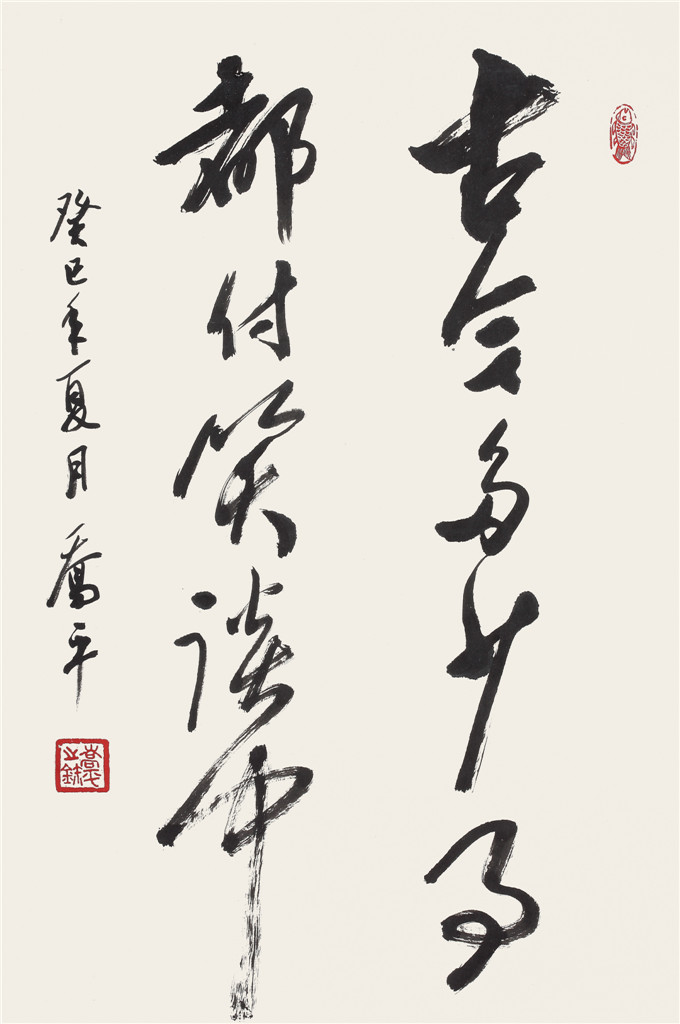 古今多少事
都付笑談中
癸巳年夏月 喬平